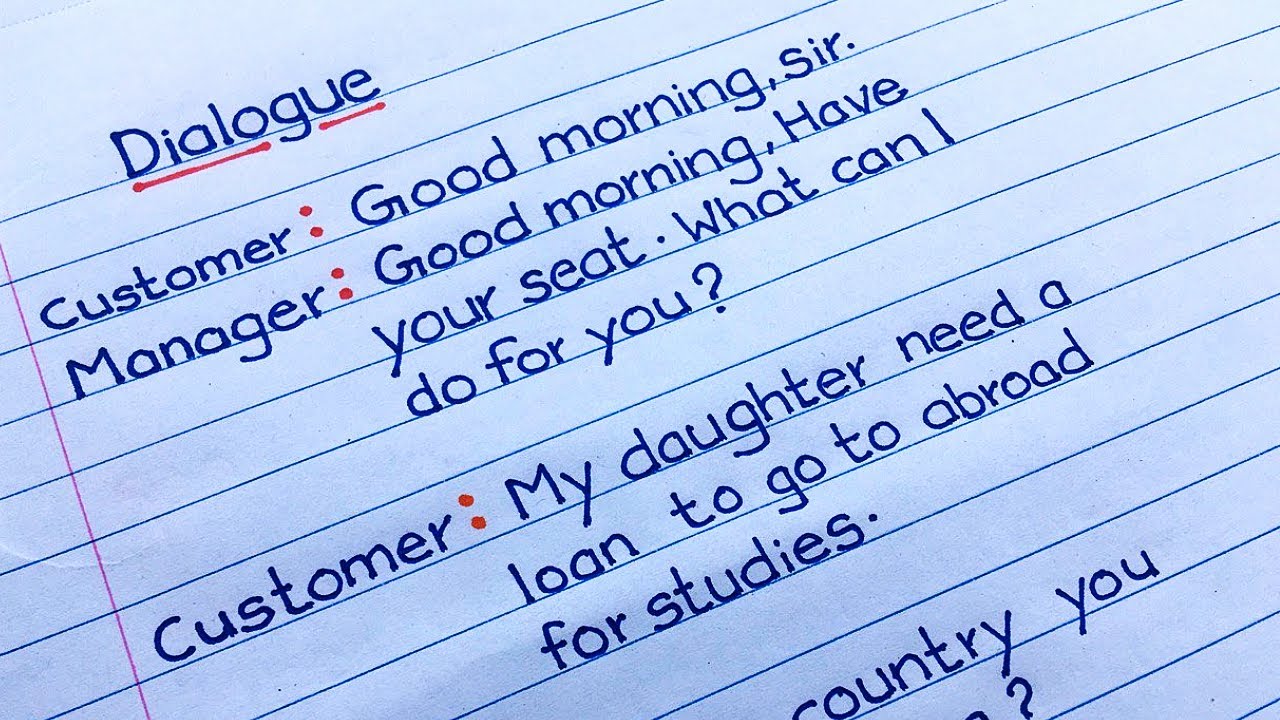 Dialogue
Customer: Good morning, sir.
Manager: Good morning, Have
your seat. What can I
do for you?
Customer: My daughter need a
loan to go to abroad
for studies.
country you
?